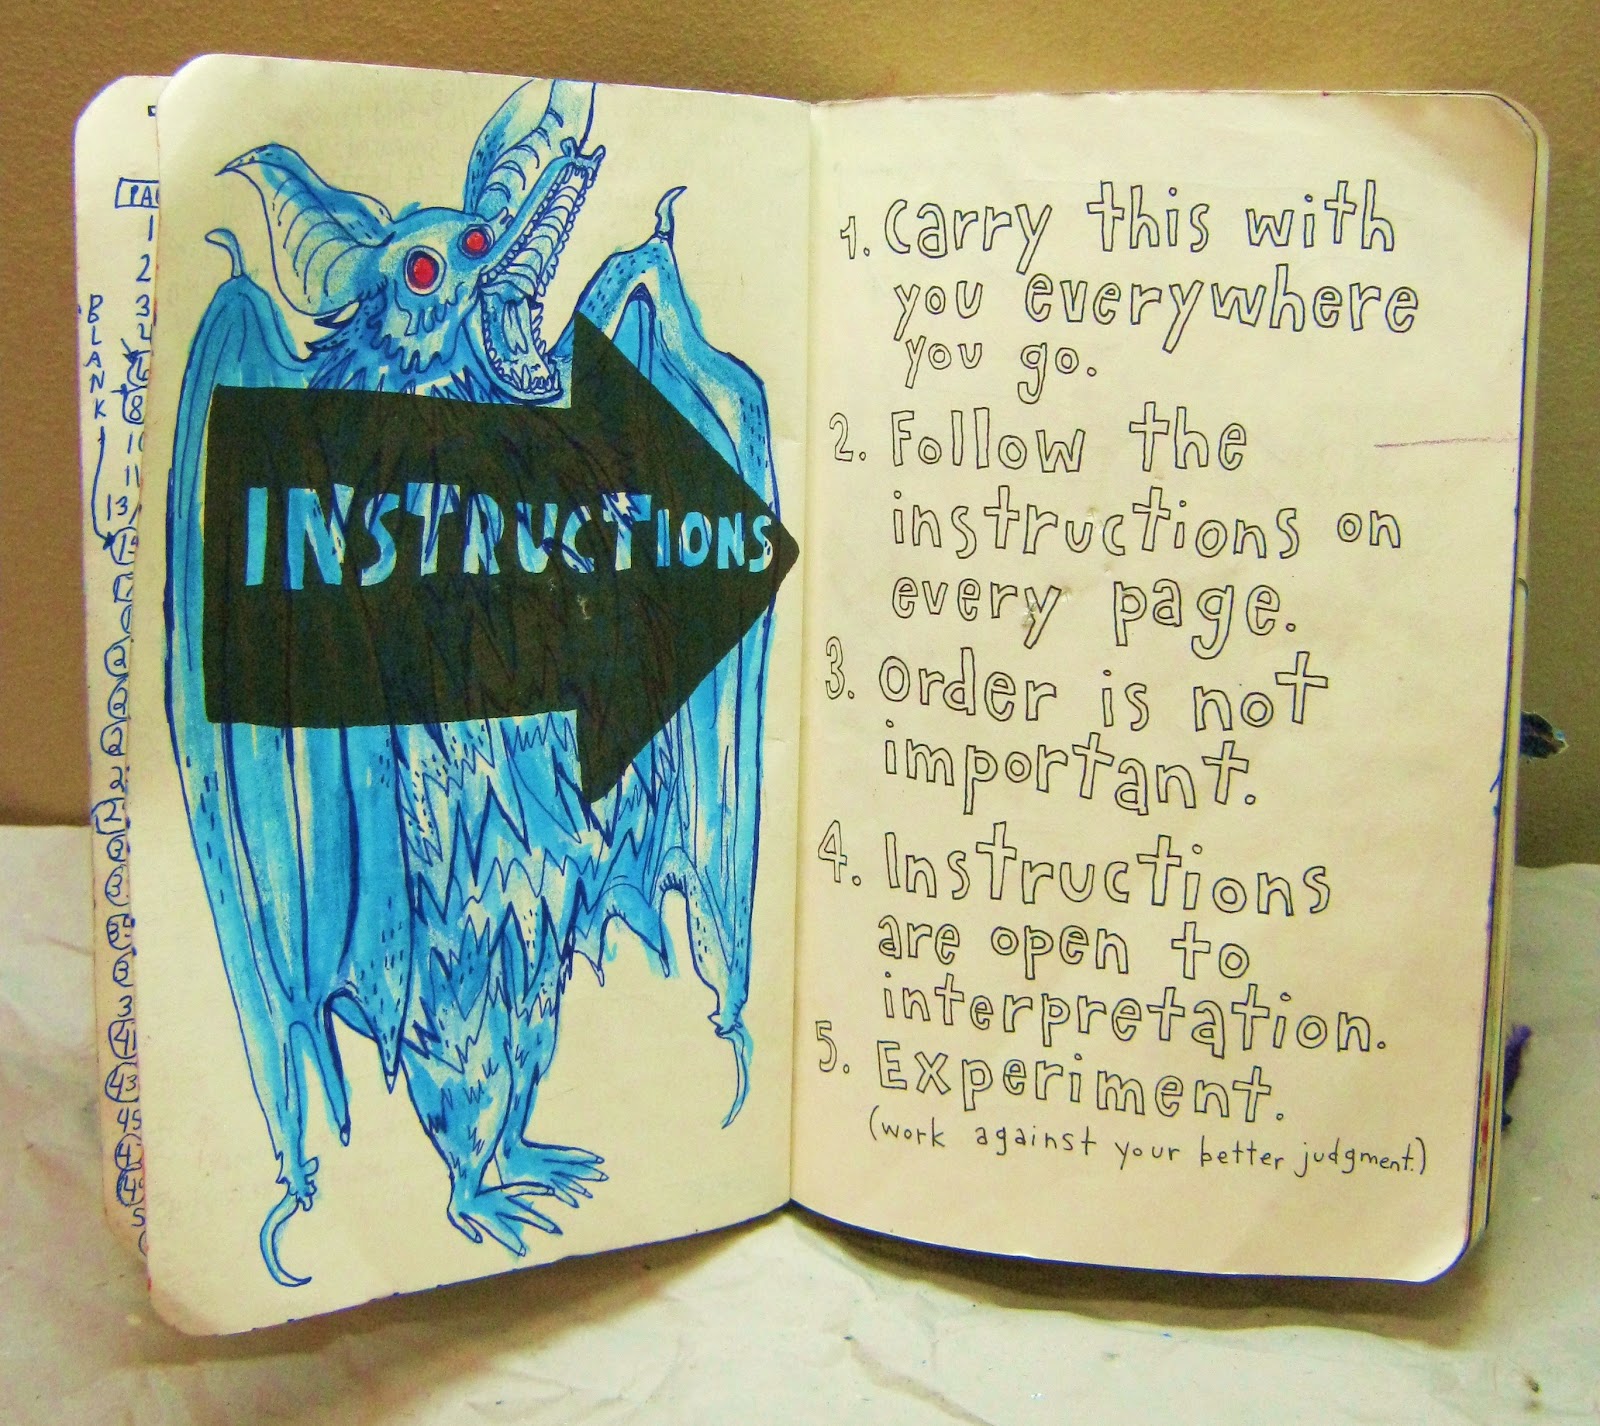 PA
1
2
3
4
6
8
BLANK
11
13
3
43
45
INSTRUCTIONS
1. Carry this with
you everywhere
you go.
2. Follow the
instructions on
every page.
3. Order is not
important.
4. Instructions
are open to
interpretation.
5. Experiment.
(work against your better judgment.)